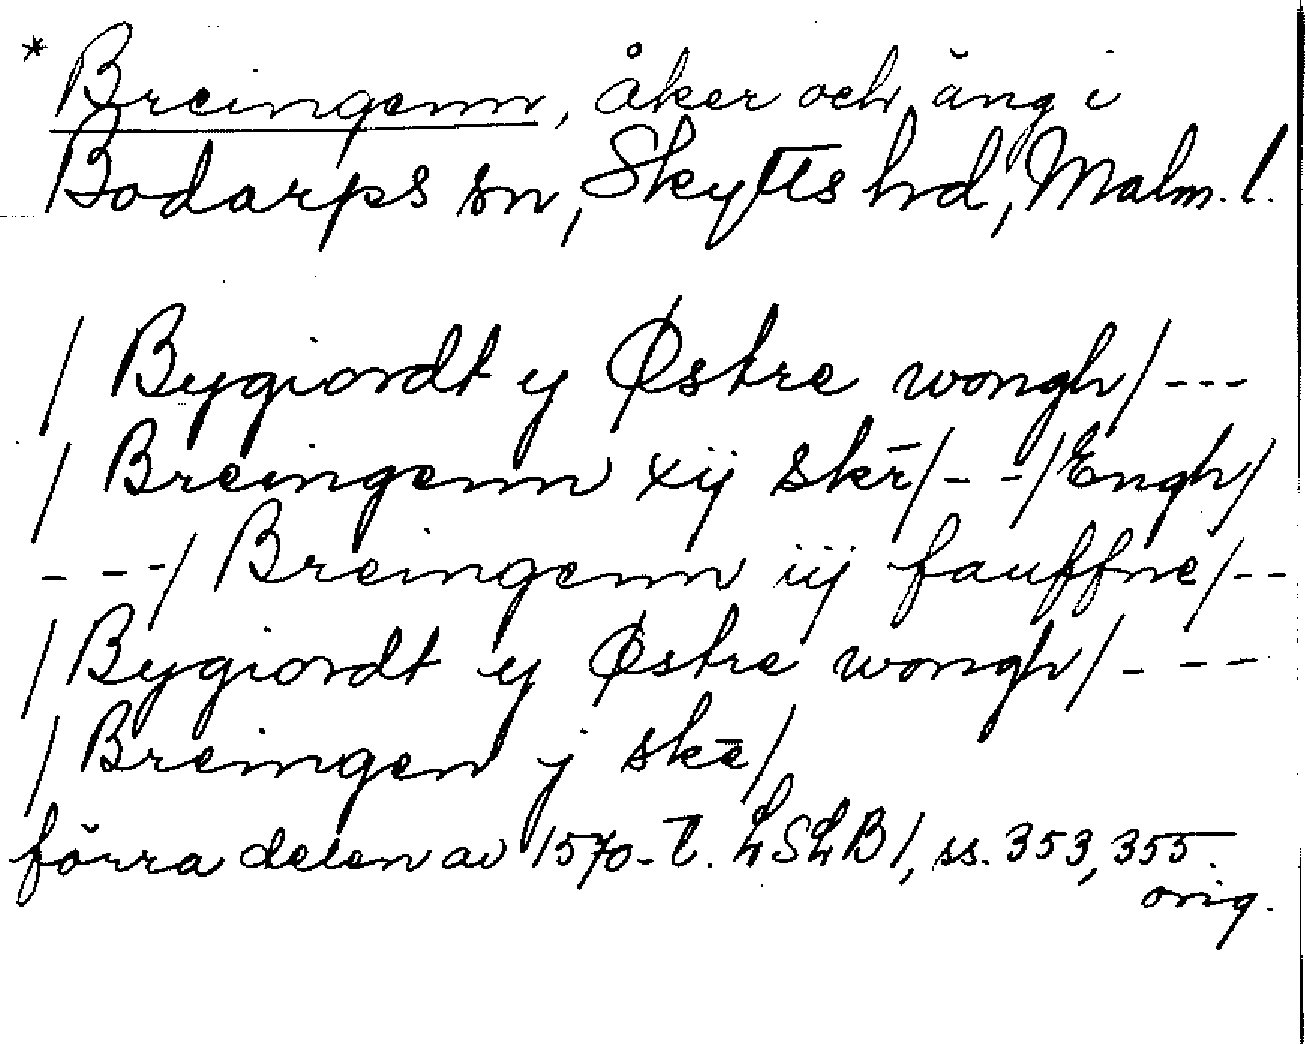 * Breingenn, åker och äng i
Bodarps sn, Skytts hd, Malm. l.
/ Bygiordt y Østre wongh/ ---
/ Breingenn xij skr̄/ - -/ Engh/
- - -/ Breingenn iij fauffne/ --
/ Bygiordt y Østre wongh/ - --
/ Breingen j skē/
förra delen av 1570-t. LSLB 1, ss. 353, 355.
orig.